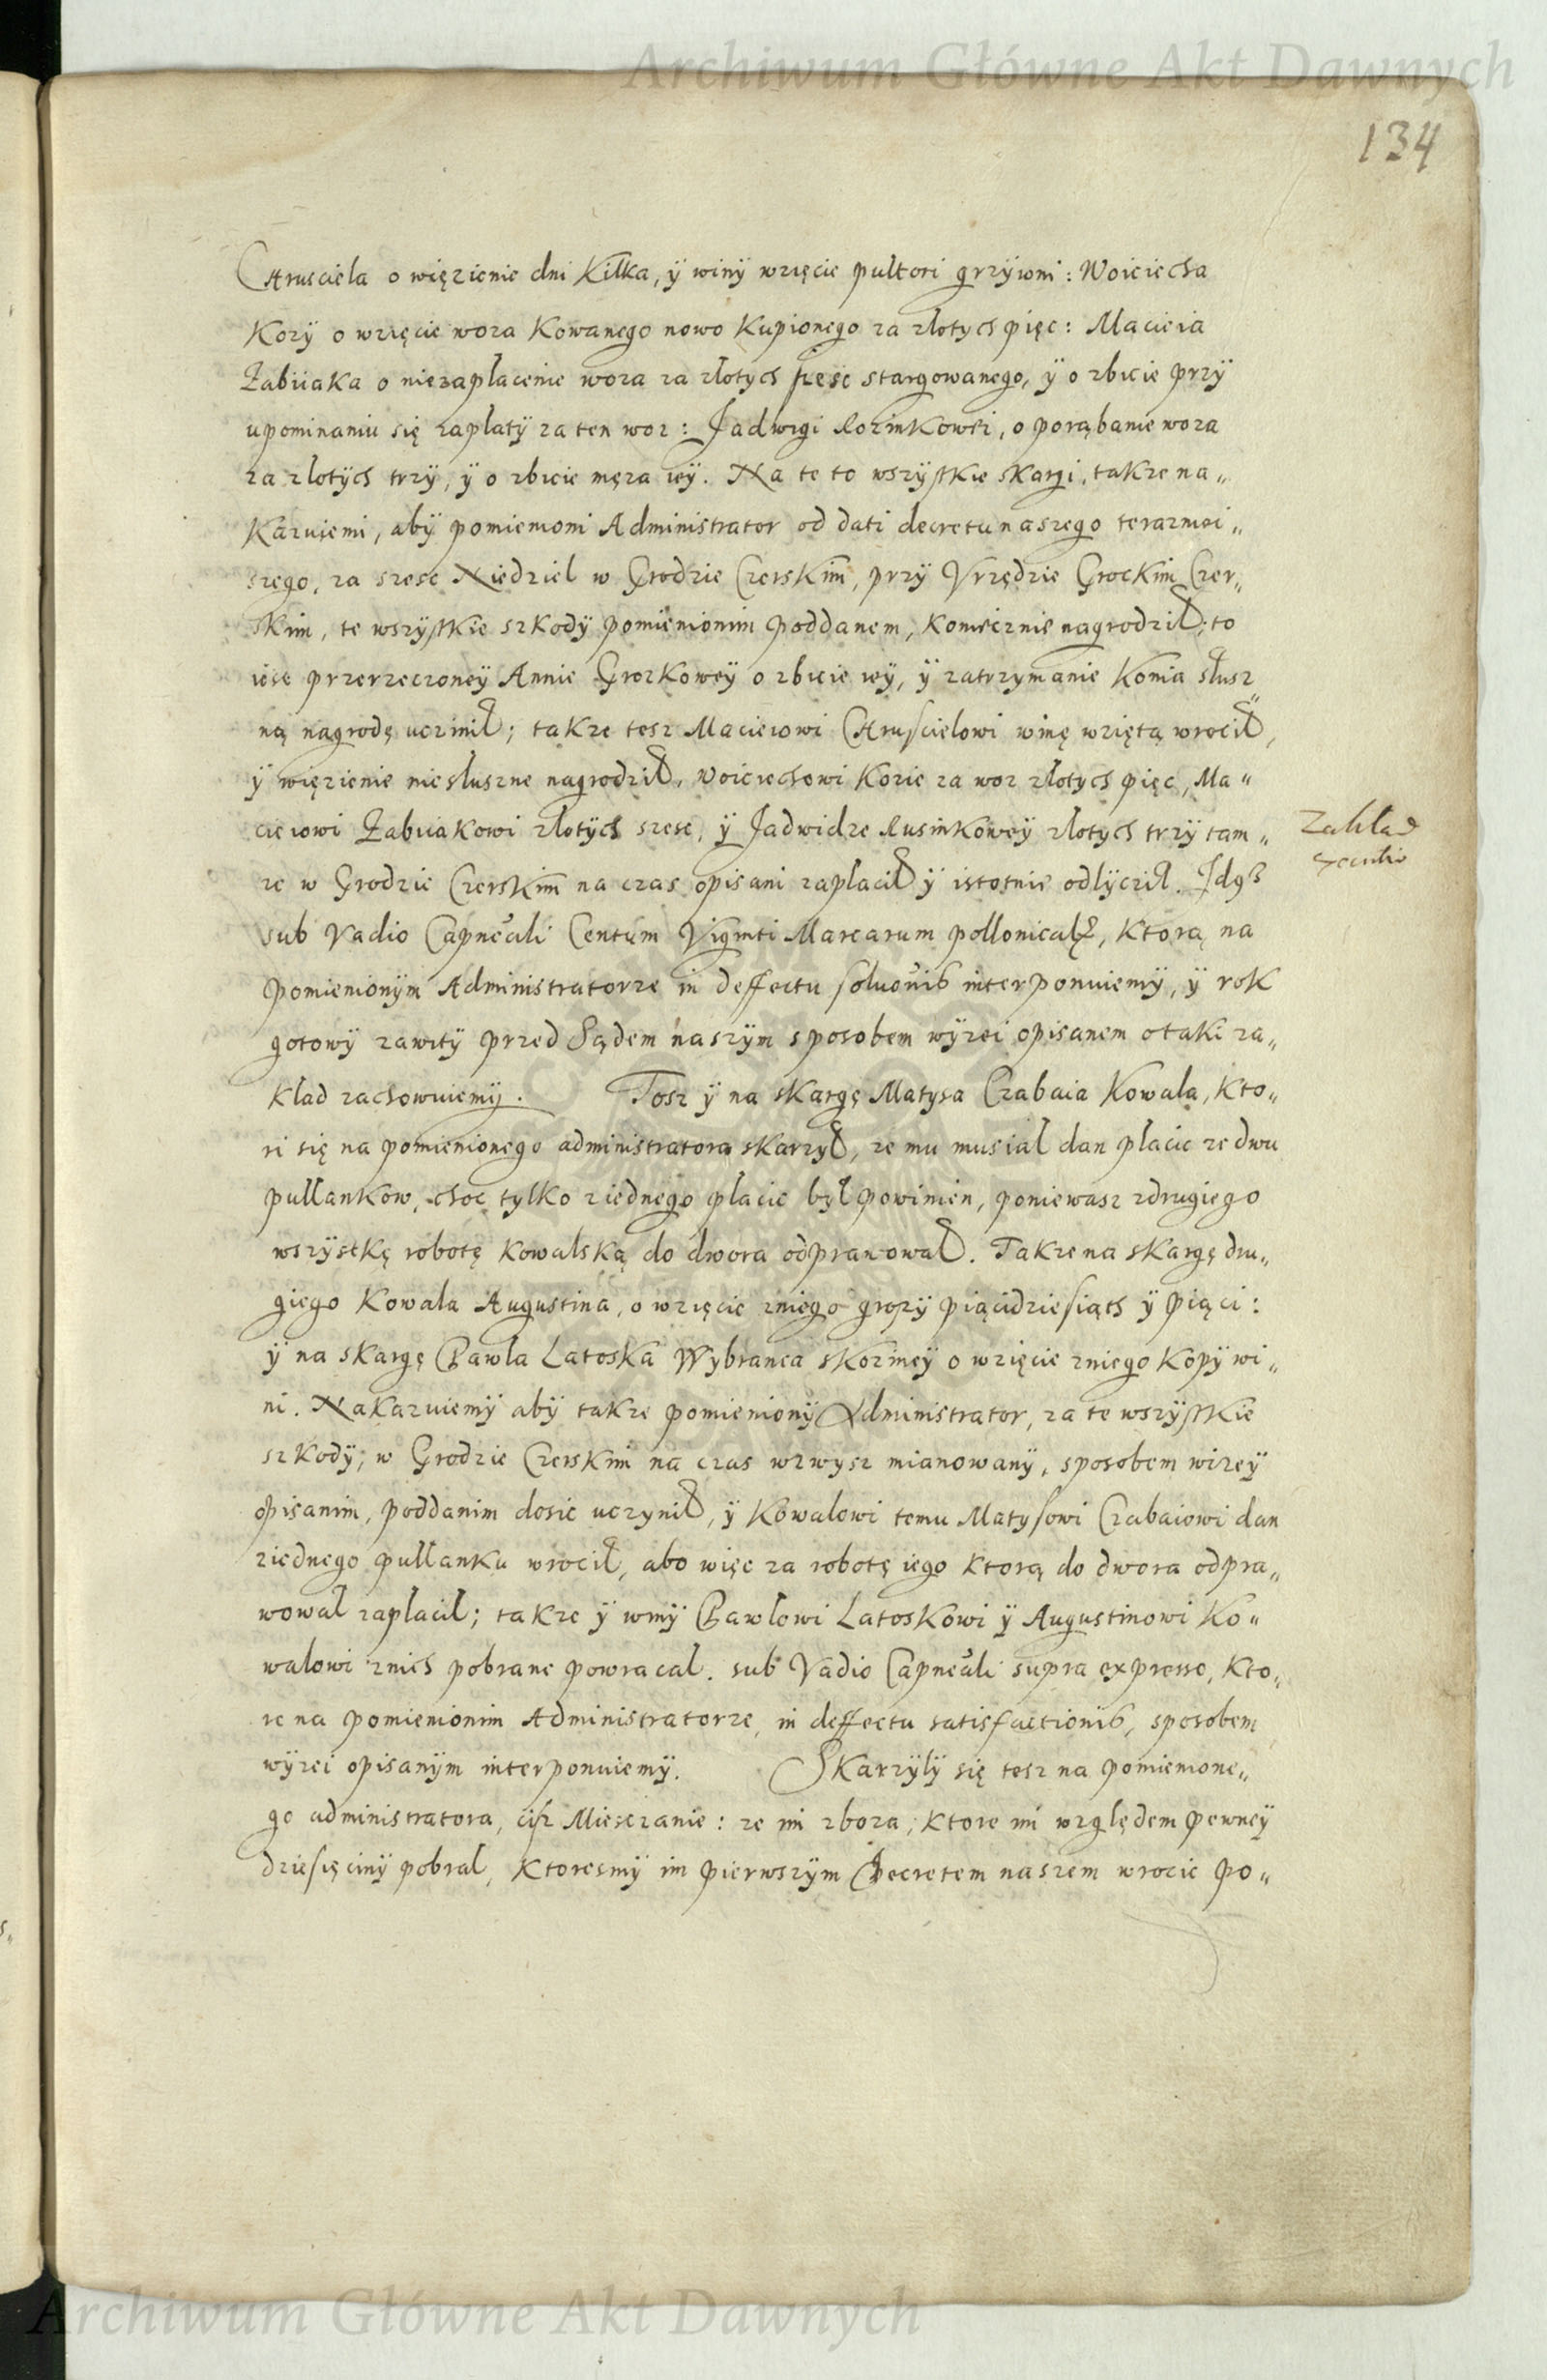 Archiwum Główne Akt Dawnych
134
Chrusciela o więzienie dni kilka, ÿ winÿ wzięcie pułtori grzÿwni: Woiciecha
Kozÿ o wzięcie woza kowanego nowo kupionego za złotych pięc: Macieia
Żabiiaka o niezapłacenie woza za złotych szesc stargowanego, ÿ o zbicie przÿ
upominaniu się zapłatÿ za ten woz: Jadwigi Rozinkowei, o porąbanie woza
za złotÿch trzÿ, ÿ o zbicie męza ieÿ. Na te to wszÿstkie skargi, takze na„
kazuiemi, abÿ pomienioni Administrator od dati decretu naszego terazniei„
szego, za szesc Niedziel w Grodzie Czerskim, przÿ Vrzędzie Grockim Czer„
skim, te wszÿstkie szkodÿ pomienionim poddanem, koniecznie nagrodził, to
iest przerzeczoneÿ Annie Grozkoweÿ o zbicie ieÿ, ÿ zatrzymanie konia słusz„
ną nagrodę uczinił; takze tesz Macieiowi Chruscielowi winę wziętą wrocił,
ÿ więzienie niesłuszne nagrodził, Woiciechowi Kozie za woz złotych pięc, Ma„
cieiowi Żabiiakowi złotÿch szesc, ÿ Jadwidze Rusinkoweÿ złotych trzÿ tam„
ze w Grodzie Czerskim na czas opisani zapłacił ÿ istotnie odlÿcził. Idqz
sub Vadio Capneali Centum Viginti Marcarum pollonicalium, ktorą na
pomienionÿm Administratorze in deffectu solutionis interponuiemÿ, ÿ rok
gotowÿ zawitÿ przed Sądem naszÿm sposobem wÿzei opisanem o taki za„
kład zachowuiemÿ. Tosz ÿ na skargę Matysa Czabaia Kowala, kto„
ri się na pomienionego administratora skarzył, ze mu musiał dan płacic ze dwu
pułłankow, choc tylko ziednego płacic był powinien, poniewasz zdrugiego
wszÿstkę robotę kowalską do dwora odprawował. Takze na skargę dru„
giego Kowala Augustina, o wzięcie zniego groszy piącidziesiąth ÿ piąci:
ÿ na skargę Pawła Latoska Wybranca skozineÿ o wzięcie zniego kopÿ wi„
ni. Nakazuiemÿ abÿ takze pomienionÿ Administrator, za te wszÿstkie
szkodÿ, w Grodzie Czerskim na czas wzwysz mianowanÿ, sposobem wizeÿ
opisanim, poddanim dosic uczynił, ÿ Kowalowi temu Matysowi Czabaiowi dan
ziednego pułłanku wrocił, abo więc za robotę iego ktorą do dwora odpra„
wował zapłacił; takze ÿ winÿ Pawłowi Latoskowi ÿ Augustinowi Ko„
walowi znich pobrane powracał. sub Vadio Capneali supra expresso, kto„
re na pomienionim Administratorze, in deffectu satisfactionis, sposobem
wÿzei opisanÿm interponuiemÿ. Skarzÿlÿ się tesz na pomienione„
go administratora, cisz Miesczanie: ze im zboza, ktore im względem pewneÿ
dziesięcinÿ pobrał, ktoresmÿ im pierwszÿm Decretem naszem wrocic po„
Zakład
Archiwum Główne Akt Dawnych